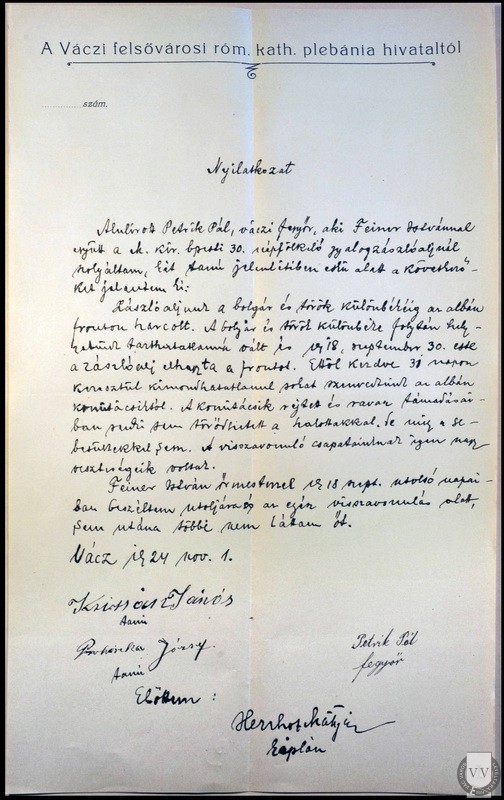 A Váczi felsővárosi róm. kath. plebánia hivataltól
szám.
Nyilatkozat
Alulírott Petrik Pál, váczi fegyőr, aki Feiner Istvánnal
együtt a M. kir. bpesti 30. népfölkelő gyalogzászlóaljnál
szolgáltam, két tanú jelenlétében eskü alatt a következő-
ket jelentem ki:
Zászlóaljunk a bolgár és török különbékéig az albán
fronton harcolt. A bolgár és török különbéke folytán hely-
zetünk tarthatatlanná vált és 1918. szeptember 30. este
a zászlóalj elhagyta a frontot. Ettől kezdve 31 napon
keresztül kimondhatatlanul sokat szenvedtünk az albán
komitácsiktól. A komitácsik rejtett és ravasz támadásai-
ban senki sem törődhetett a halottakkal, de még a se-
besültekkel sem. A visszavonuló csapatainknak igen nagy
veszteségeik voltak.
Feiner István őrmesterrel 1918 szept. utolsó napjai-
ban beszéltem utoljára és az egész visszavonulás alatt,
sem utána többé nem láttam őt.
Vácz 1924 nov. 1.
János
tanú
József
tanú
Petrik Pál
fegyőr
Előttem:
káplán
VV